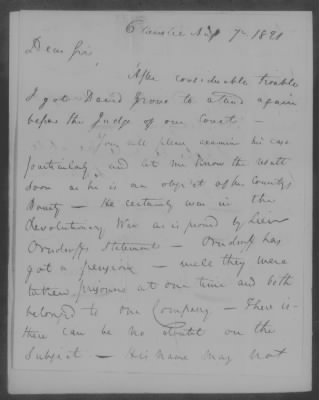 7th 1821
Dear Sir,
After considerable trouble
I got David Grove to attend again
before the Judge of our Court –
You all please examine his case
particularly and let me know the result
soon as he is an object of the Country's
Bounty – He certainly was in the
Revolutionary War as is proved by Lieut
Orndorffs Statement – Orndorff has
got a pension – well they were
taken prisoners at one time and both
belonged to one Company – There is
there can be no doubt on the
Subject – His name may not